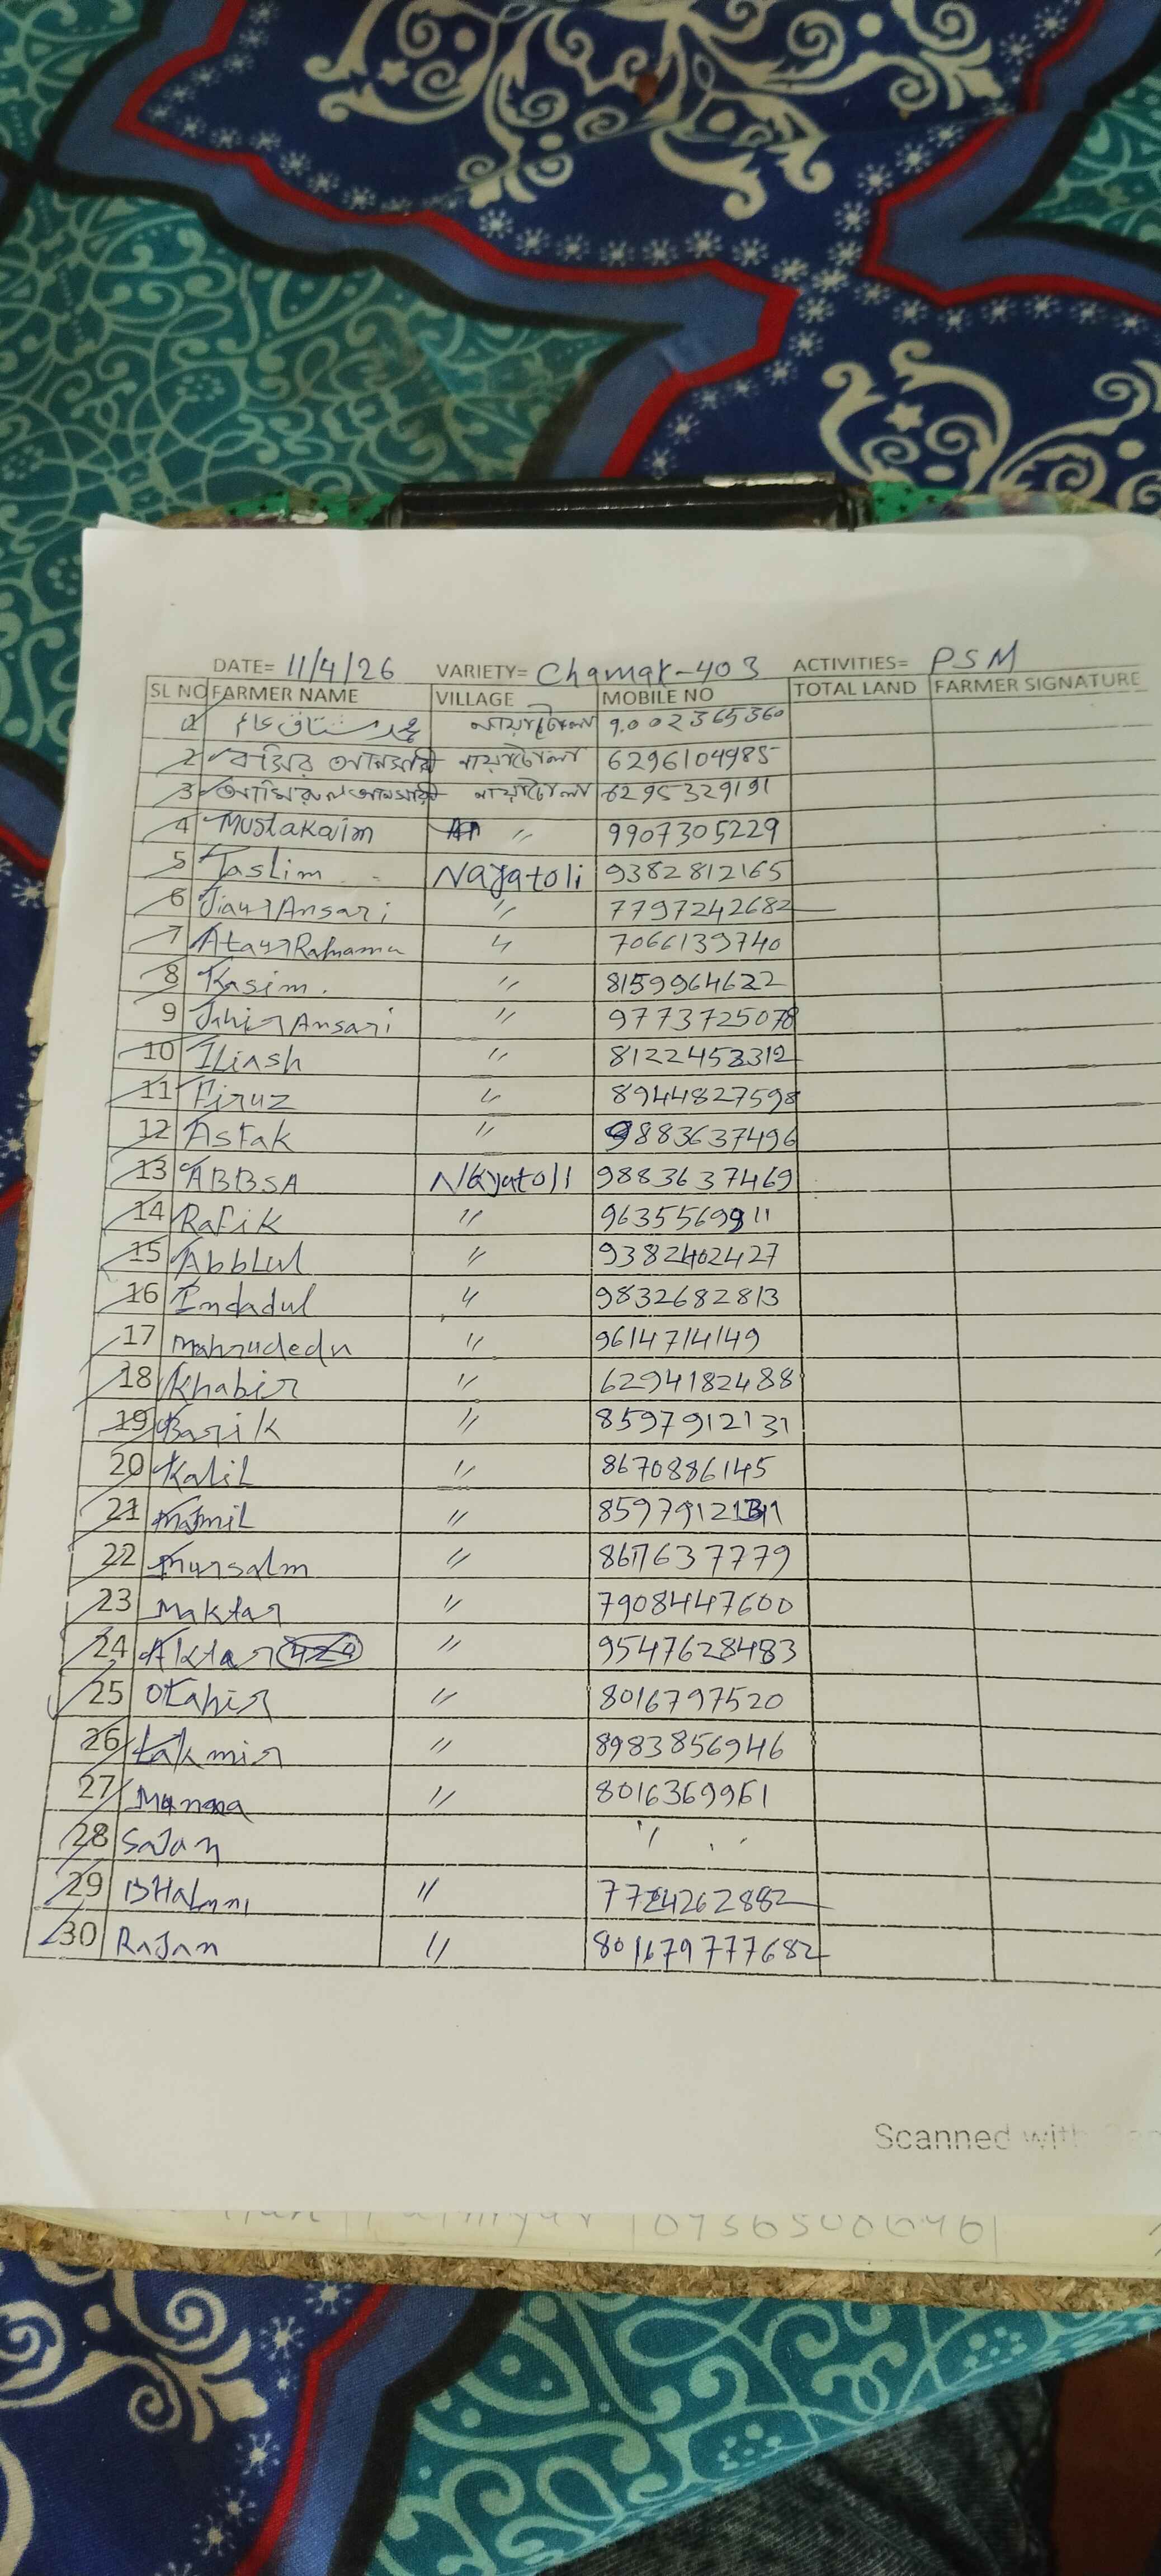 DATE= 11/4/26 VARIETY= Chamak-403 ACTIVITIES= PSM
SL NO FARMER NAME VILLAGE MOBILE NO TOTAL LAND FARMER SIGNATURE
1 محمد مشتاق عالم নায়াটোলা 9002365360
2 আনসারী নায়াটোলা 6296104985
3 আনসারী নায়াটোলা 6295329191
4 Mustakaim " 9907305229
5 Taslim Nayatoli 9382812165
6 Jiaur Ansari " 7797242682
7 Ataur " 7066139740
8 Kasim. " 8159964622
9 Jahir Ansari " 9773725078
10 ILiash " 8122453312
11 Firuz " 8944827598
12 Asfak " 9883637496
13 ABBSA Nayatoli 9883637469
14 Rafik " 9635569911
15 Abblul " 9382402427
16 Imdadul " 9832682813
17 " 9614714149
18 Khabir " 6294182488
19 Barik " 8597912131
20 Kalil " 8670886145
21 "
22 Mursalm " 8617637779
23 Maktar " 7908447600
24 Aktar " 9547628483
25 Otahir " 8016797520
26 takmir " 8983856946
27 Munna " 8016369961
28 SaJan "
29 "
30 RaJan " 801679777682
Scanned with